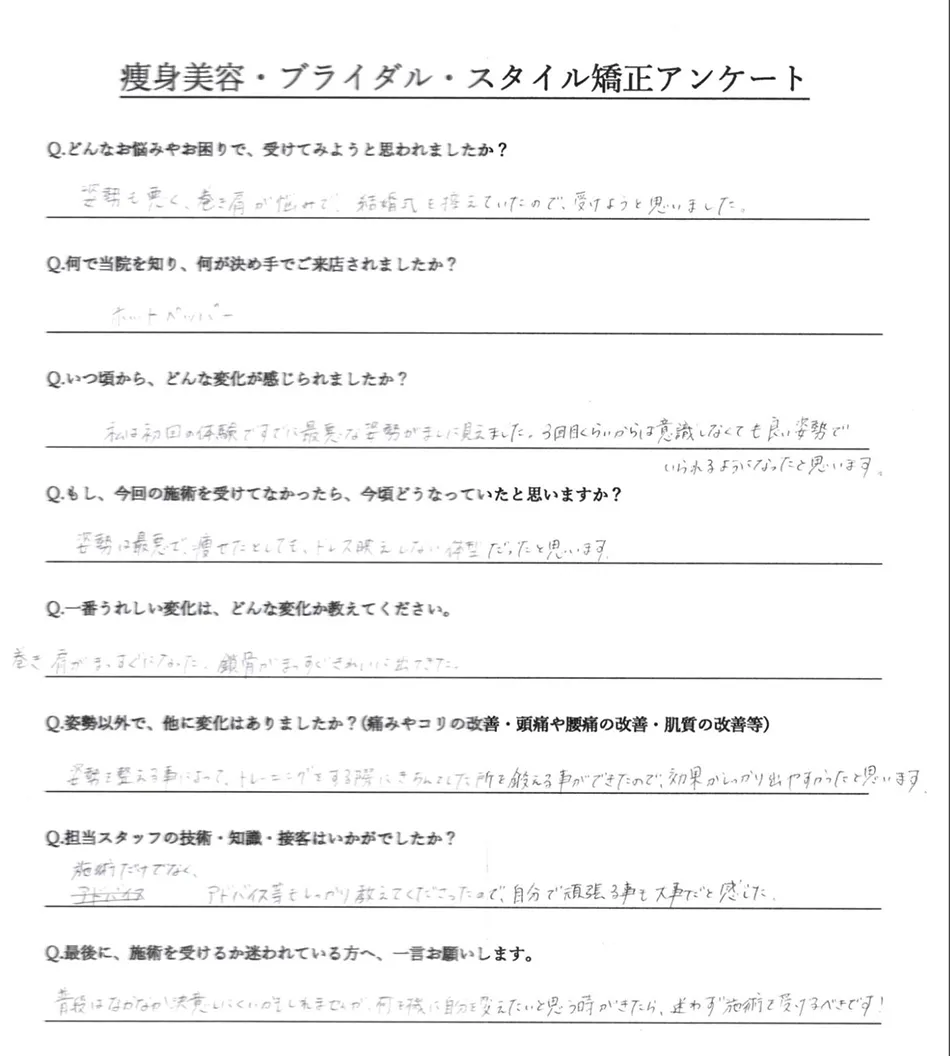 痩身美容・ブライダル・スタイル矯正アンケート
Q.どんなお悩みやお困りで、受けてみようと思われましたか？
姿勢も悪く、巻き肩が悩みで、結婚式を控えていたので、受けようと思いました。
Q.何で当院を知り、何が決め手でご来店されましたか？
ホットペッパー
Q.いつ頃から、どんな変化が感じられましたか？
私は初回の体験ですでに最悪な姿勢がましに見えました。3回目くらいからは意識しなくても良い姿勢で
いられるようになったと思います。
Q.もし、今回の施術を受けてなかったら、今頃どうなっていたと思いますか？
姿勢は最悪で、痩せたとしても、ドレス映えしない体型だったと思います。
Q.一番うれしい変化は、どんな変化か教えてください。
巻き肩がまっすぐになった、鎖骨がまっすぐきれいに出てきた。
Q.姿勢以外で、他に変化はありましたか？(痛みやコリの改善・頭痛や腰痛の改善・肌質の改善等)
姿勢を整える事によって、トレーニングをする際にきちんとした所を鍛える事ができたので、効果がしっかり出やすかったと思います。
Q.担当スタッフの技術・知識・接客はいかがでしたか？
施術だけでなく、
アドバイス アドバイス等もしっかり教えてくださったので、自分で頑張る事も大事だと感じた。
Q.最後に、施術を受けるか迷われている方へ、一言お願いします。
普段はなかなか決意しにくいかもしれませんが、何を機に自分を変えたいと思う時がきたら、迷わず施術を受けるべきです！